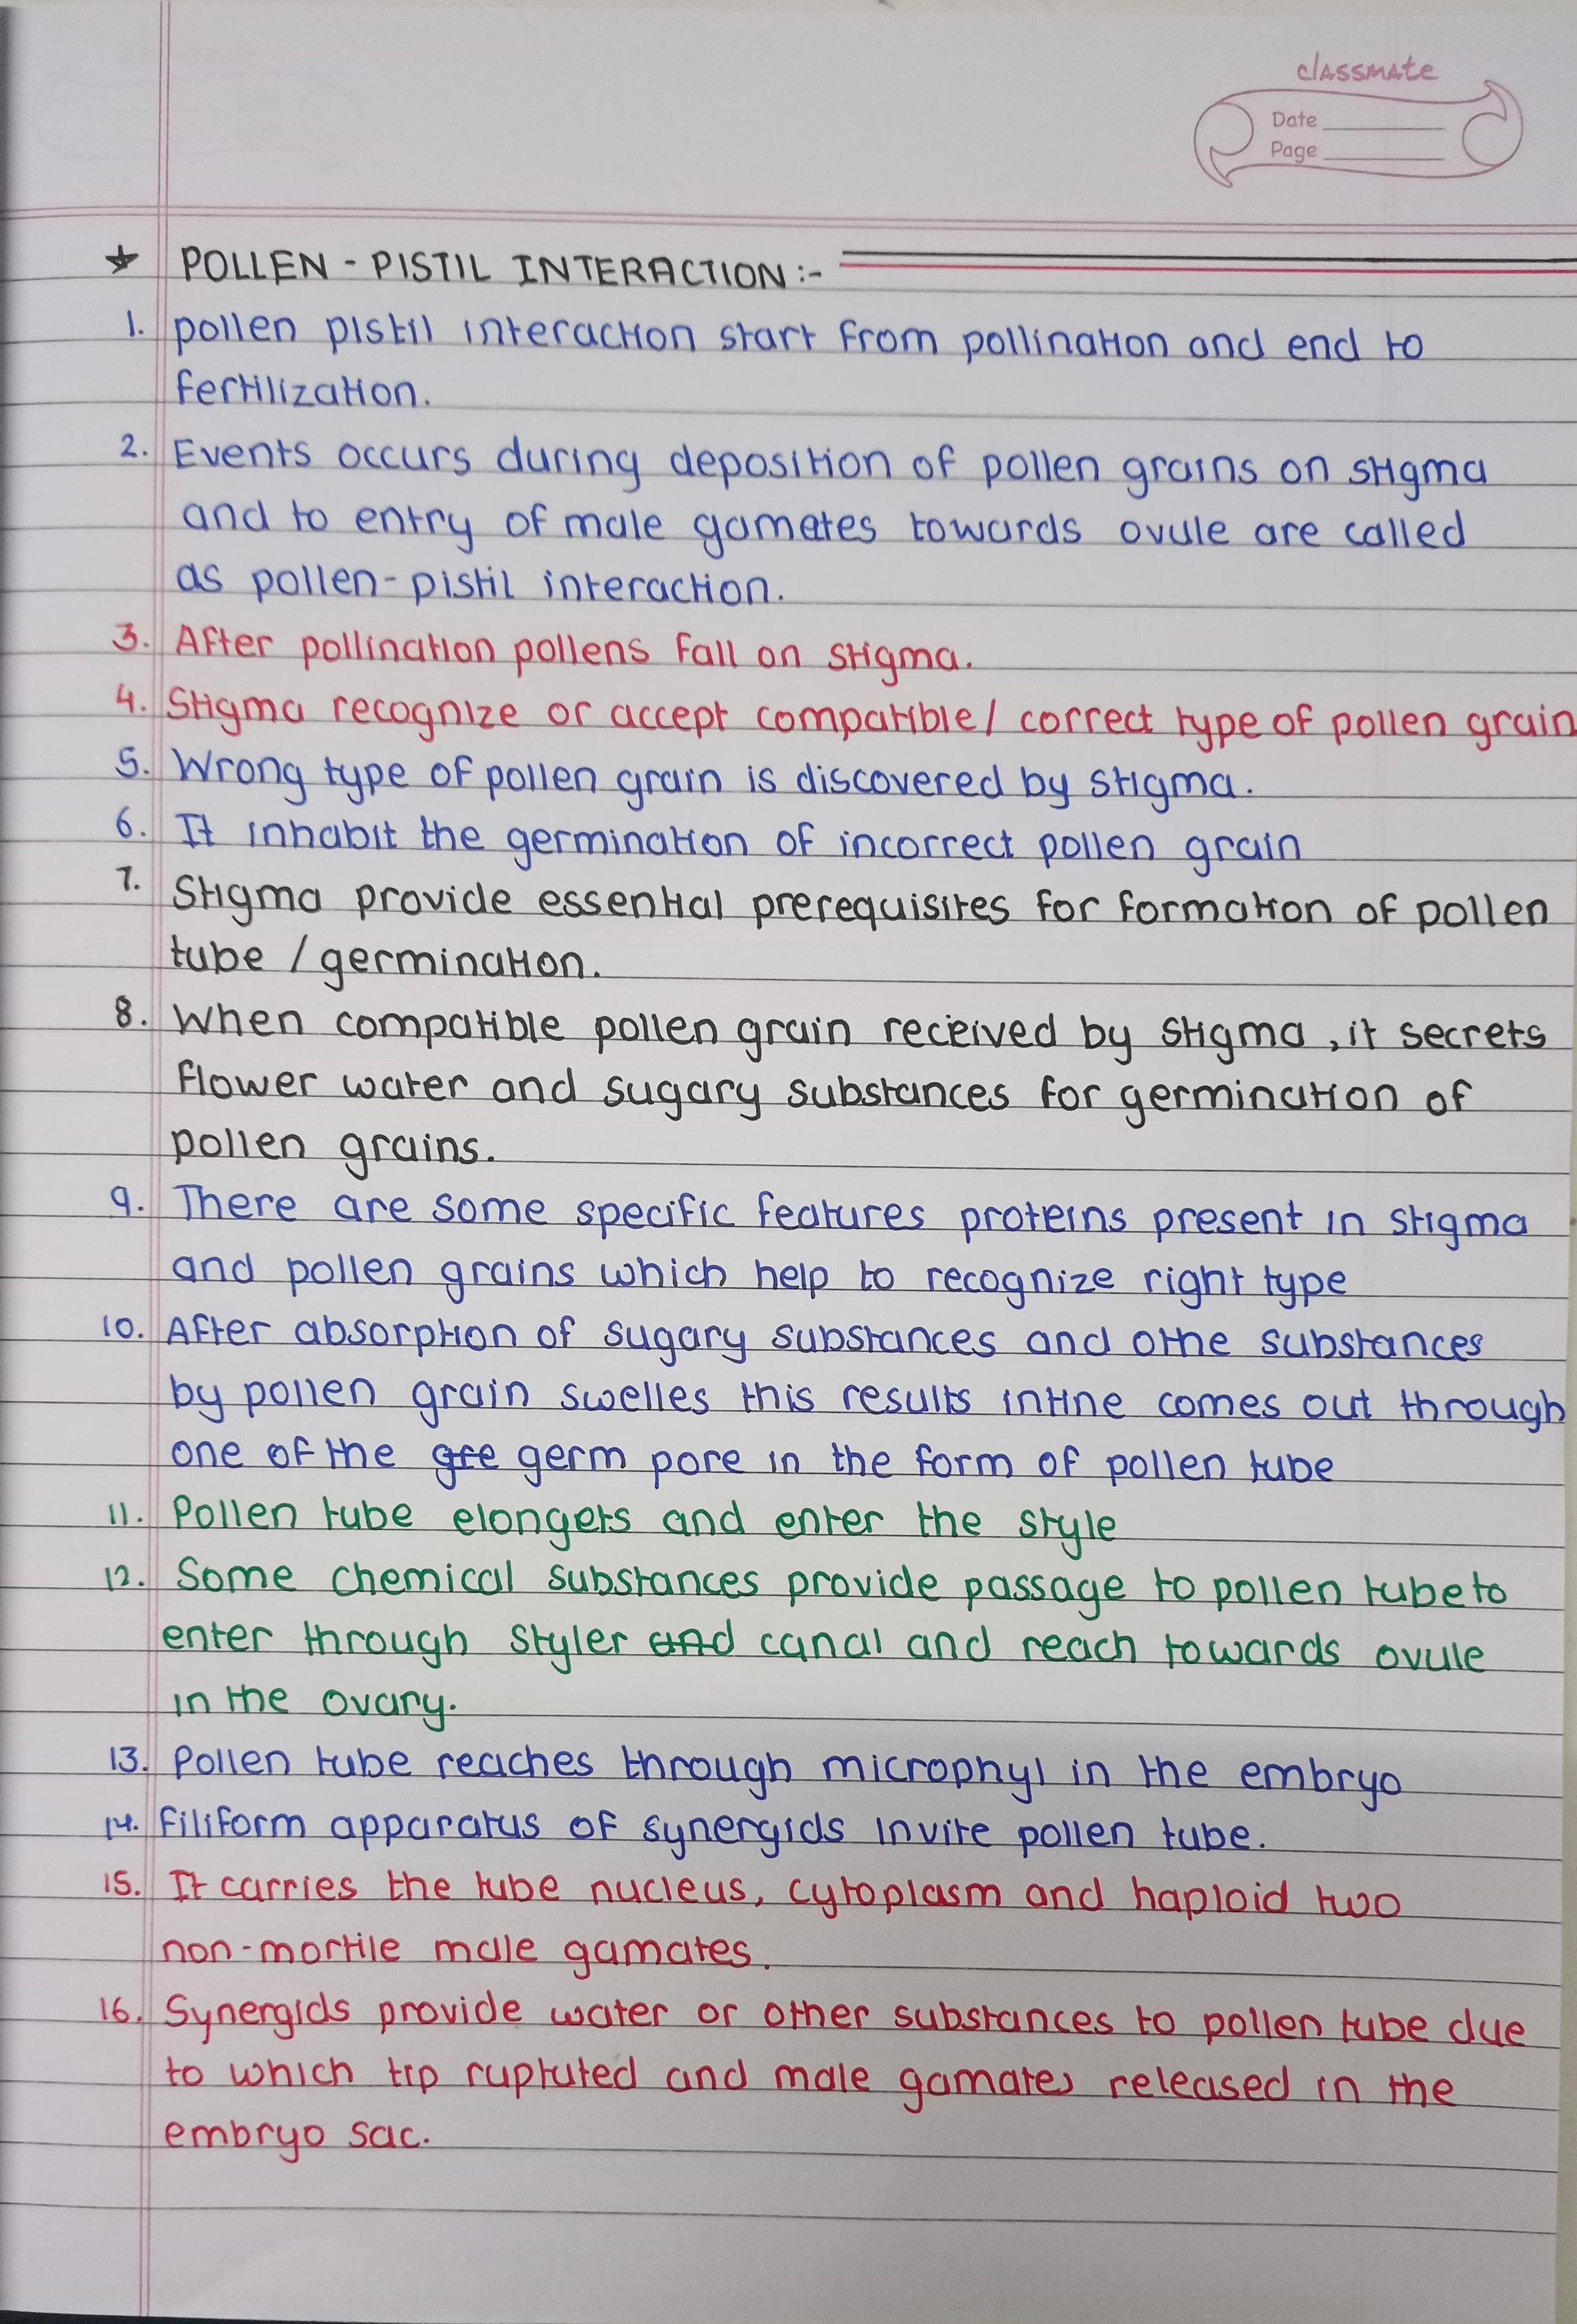 classmate
Date
Page
★ POLLEN - PISTIL INTERACTION :-
1. pollen pistil interaction start from pollination and end to
fertilization.
2. Events occurs during deposition of pollen grains on stigma
and to entry of male gametes towards ovule are called
as pollen-pistil interaction.
3. After pollination pollens fall on stigma.
4. Stigma recognize or accept compatible/ correct type of pollen grain
5. Wrong type of pollen grain is discovered by stigma.
6. It inhabit the germination of incorrect pollen grain
7. Stigma provide essential prerequisites for formation of pollen
tube / germination.
8. When compatible pollen grain received by stigma, it secrets
flower water and sugary substances for germination of
pollen grains.
9. There are some specific features proteins present in stigma
and pollen grains which help to recognize right type
10. After absorption of sugary substances and othe substances
by pollen grain swelles this results intine comes out through
one of the gre germ pore in the form of pollen tube
11. Pollen tube elongets and enter the style
12. Some chemical substances provide passage to pollen tube to
enter through styler and canal and reach towards ovule
in the ovary.
13. Pollen tube reaches through microphyl in the embryo
14. filiform apparatus of synergids invite pollen tube.
15. It carries the tube nucleus, cytoplasm and haploid two
non-mortile male gamates.
16. Synergids provide water or other substances to pollen tube due
to which tip ruptuted and male gamates released in the
embryo sac.